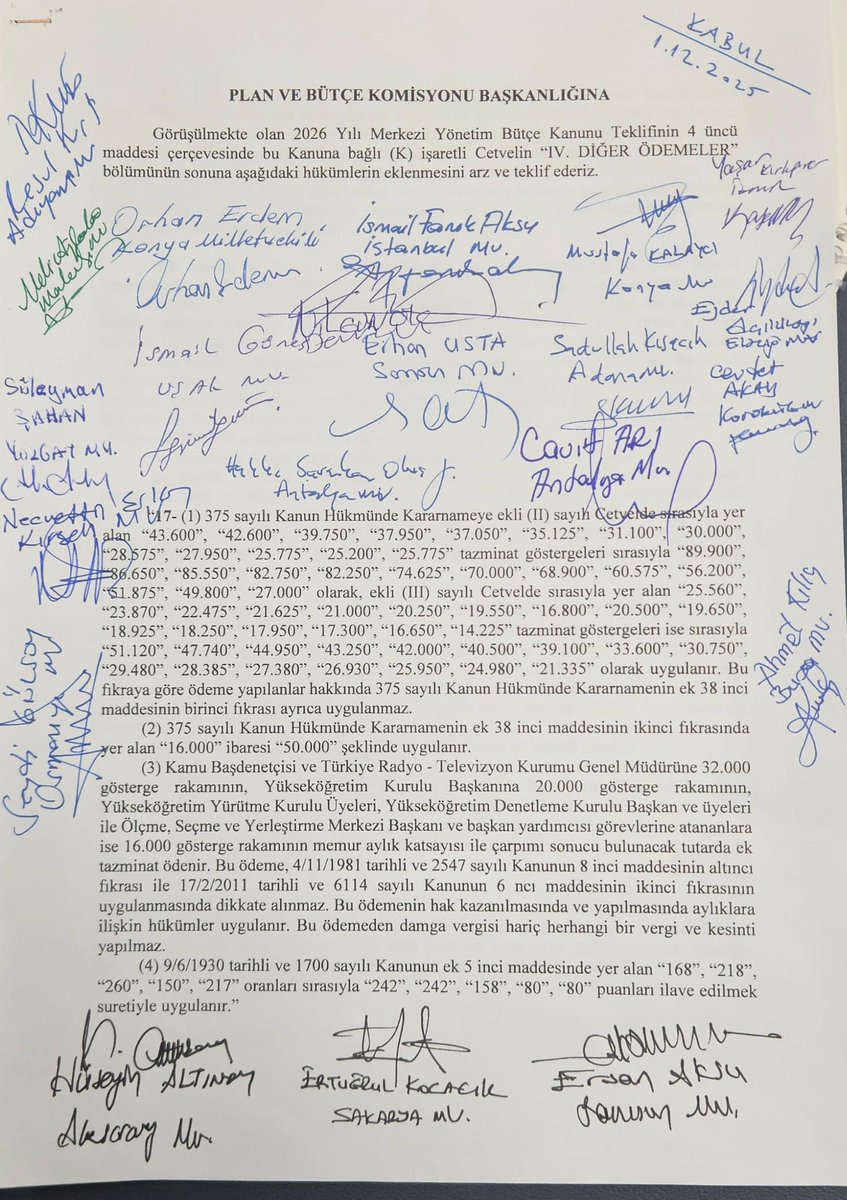 KABUL
1.12.2025
PLAN VE BÜTÇE KOMİSYONU BAŞKANLIĞINA
Görüşülmekte olan 2026 Yılı Merkezi Yönetim Bütçe Kanunu Teklifinin 4 üncü
maddesi çerçevesinde bu Kanuna bağlı (K) işaretli Cetvelin “IV. DİĞER ÖDEMELER”
bölümünün sonuna aşağıdaki hükümlerin eklenmesini arz ve teklif ederiz.
Adıyaman
Yaşar
İzmir
Orhan Erdem
Konya Milletvekili
Orhan Erdem
İsmail Faruk Aksu
İstanbul Mv.
Mustafa KALAYCI
Konya Mv
İsmail Güneş
UŞAK MV.
Erhan USTA
Samsun Mv.
Sadullah Kısacık
Adana Mv.
Ejder
Açıkkapı
Elazığ Mv
Cevdet
AKAY
Karabük
Süleyman
ŞAHAN
YOZGAT MV.
Hakkı Saruhan Oluç
Antalya Mv.
Cavit ARI
Antalya Mv
Necmettin Erkan
Kırşehir MV
“17- (1) 375 sayılı Kanun Hükmünde Kararnameye ekli (II) sayılı Cetvelde sırasıyla yer
alan “43.600”, “42.600”, “39.750”, “37.950”, “37.050”, “35.125”, “31.100”, “30.000”,
“28.575”, “27.950”, “25.775”, “25.200”, “25.775” tazminat göstergeleri sırasıyla “89.900”,
“86.650”, “85.550”, “82.750”, “82.250”, “74.625”, “70.000”, “68.900”, “60.575”, “56.200”,
“51.875”, “49.800”, “27.000” olarak, ekli (III) sayılı Cetvelde sırasıyla yer alan “25.560”,
“23.870”, “22.475”, “21.625”, “21.000”, “20.250”, “19.550”, “16.800”, “20.500”, “19.650”,
“18.925”, “18.250”, “17.950”, “17.300”, “16.650”, “14.225” tazminat göstergeleri ise sırasıyla
“51.120”, “47.740”, “44.950”, “43.250”, “42.000”, “40.500”, “39.100”, “33.600”, “30.750”,
“29.480”, “28.385”, “27.380”, “26.930”, “25.950”, “24.980”, “21.335” olarak uygulanır. Bu
fıkraya göre ödeme yapılanlar hakkında 375 sayılı Kanun Hükmünde Kararnamenin ek 38 inci
maddesinin birinci fıkrası ayrıca uygulanmaz.
Ahmet Kılıç
Bursa Mv.
(2) 375 sayılı Kanun Hükmünde Kararnamenin ek 38 inci maddesinin ikinci fıkrasında
yer alan “16.000” ibaresi “50.000” şeklinde uygulanır.
(3) Kamu Başdenetçisi ve Türkiye Radyo - Televizyon Kurumu Genel Müdürüne 32.000
gösterge rakamının, Yükseköğretim Kurulu Başkanına 20.000 gösterge rakamının,
Yükseköğretim Yürütme Kurulu Üyeleri, Yükseköğretim Denetleme Kurulu Başkan ve üyeleri
ile Ölçme, Seçme ve Yerleştirme Merkezi Başkanı ve başkan yardımcısı görevlerine atananlara
ise 16.000 gösterge rakamının memur aylık katsayısı ile çarpımı sonucu bulunacak tutarda ek
tazminat ödenir. Bu ödeme, 4/11/1981 tarihli ve 2547 sayılı Kanunun 8 inci maddesinin altıncı
fıkrası ile 17/2/2011 tarihli ve 6114 sayılı Kanunun 6 ncı maddesinin ikinci fıkrasının
uygulanmasında dikkate alınmaz. Bu ödemenin hak kazanılmasında ve yapılmasında aylıklara
ilişkin hükümler uygulanır. Bu ödemeden damga vergisi hariç herhangi bir vergi ve kesinti
yapılmaz.
(4) 9/6/1930 tarihli ve 1700 sayılı Kanunun ek 5 inci maddesinde yer alan “168”, “218”,
“260”, “150”, “217” oranları sırasıyla “242”, “242”, “158”, “80”, “80” puanları ilave edilmek
suretiyle uygulanır.”
Hüseyin ALTINSOY
Aksaray Mv.
ERTUĞRUL KOCACIK
SAKARYA MV.
Ersan AKSU
Samsun Mv.